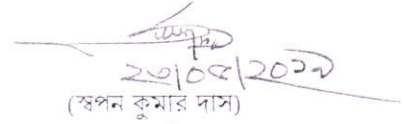 ২৩|০৫|২০১৯
(স্বপন কুমার দাস)